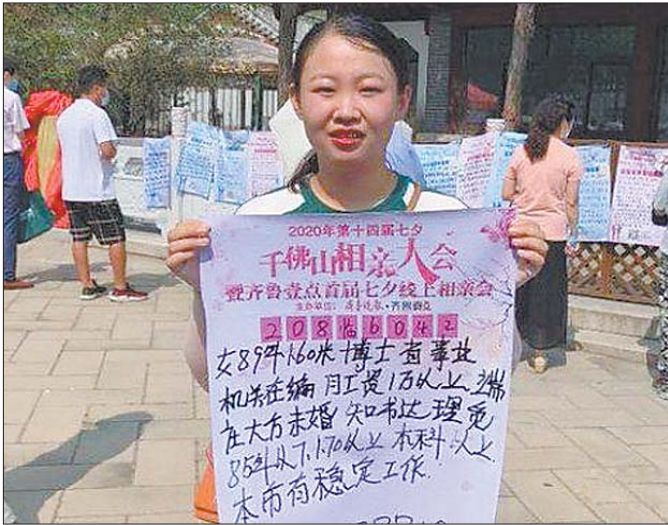 2020年第十四届七夕
千佛山相亲大会
暨齐鲁壹点首届七夕线上相亲会
主办单位：齐鲁晚报·齐鲁壹点
208临6042
女89年160米博士省事业
机关在编 月工资1万以上 端
庄大方未婚 知书达理 觅
85年以下,170以上 本科以上
本市有稳定工作.